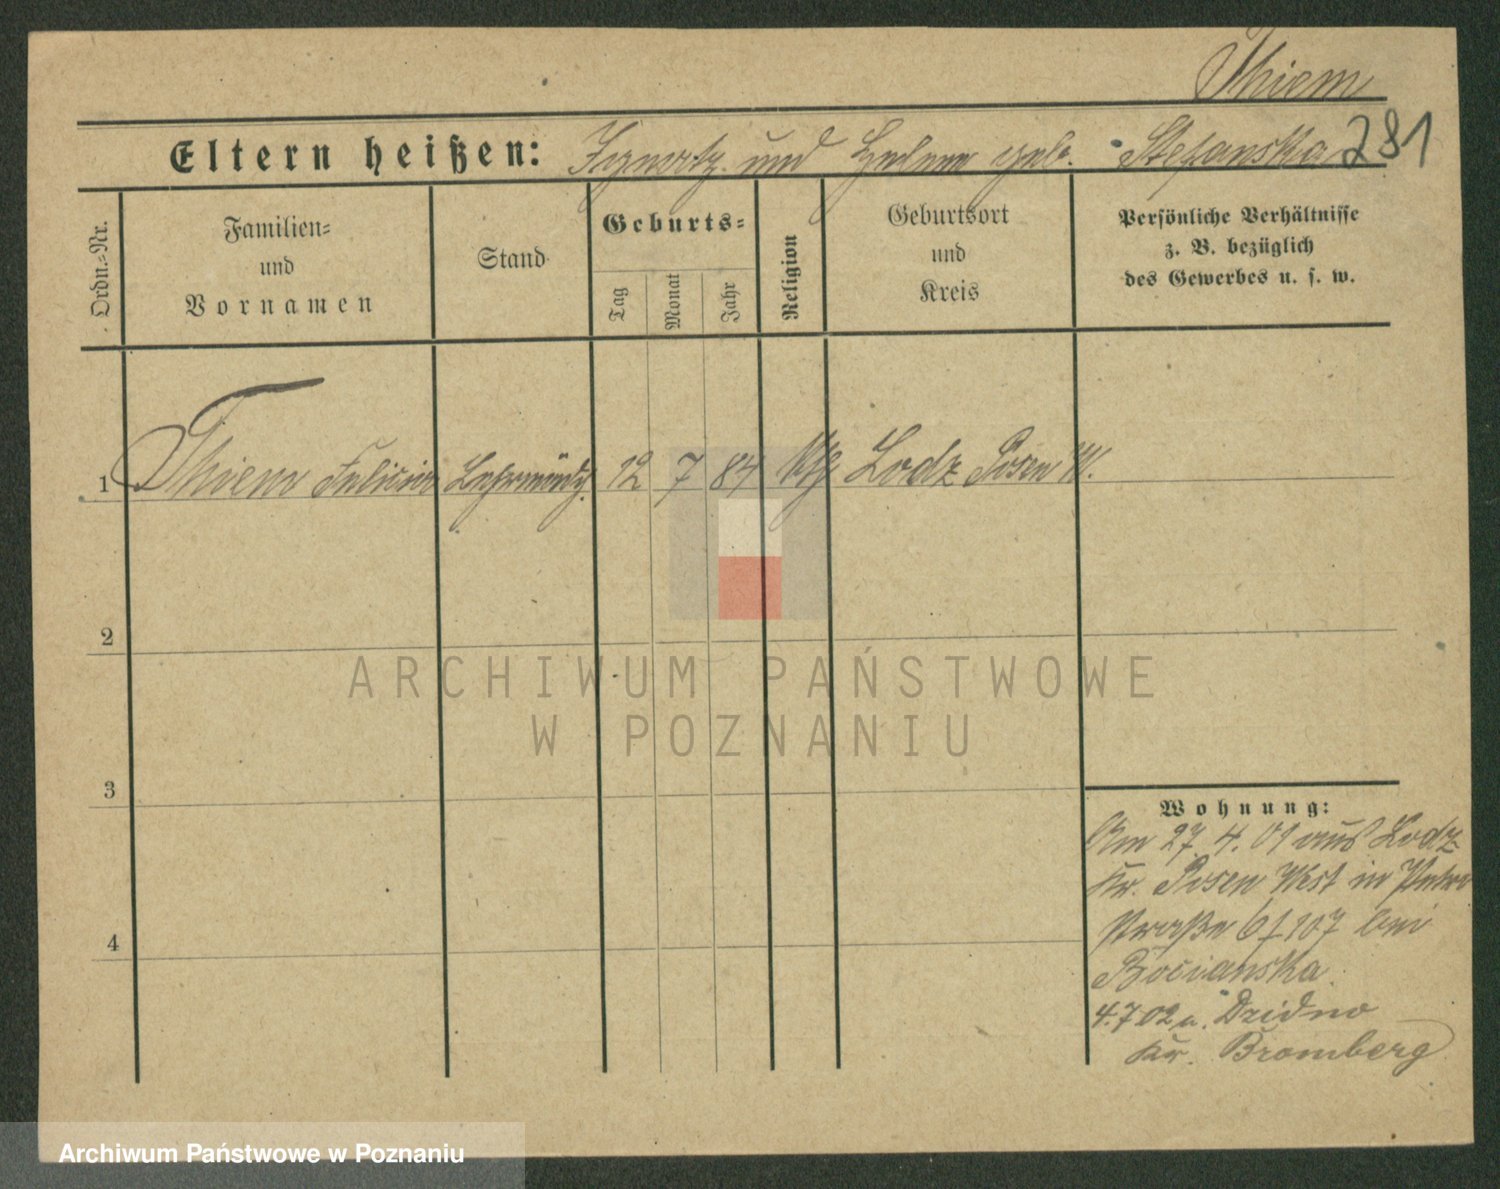 Thiem
Eltern heißen: Ignatz und Helene geb. Stefanska 281
Ordn.-Nr.
Familien-
und
Vornamen
Stand
Geburts-
Tag
Monat
Jahr
Religion
Geburtsort
und
Kreis
Persönliche Verhältnisse
z. B. bezüglich
des Gewerbes u. s. w.
1 Thiem Felicia 12 7 84 Lodz Posen W.
2
3
4
Wohnung:
Am 27. 4. 01 aus Lodz
Kr. Posen West in
straße 6 f 107 bei
Bocianska
4.7 02 n. Dzidno
Kr. Bromberg
ARCHIWUM PAŃSTWOWE
W POZNANIU
Archiwum Państwowe w Poznaniu